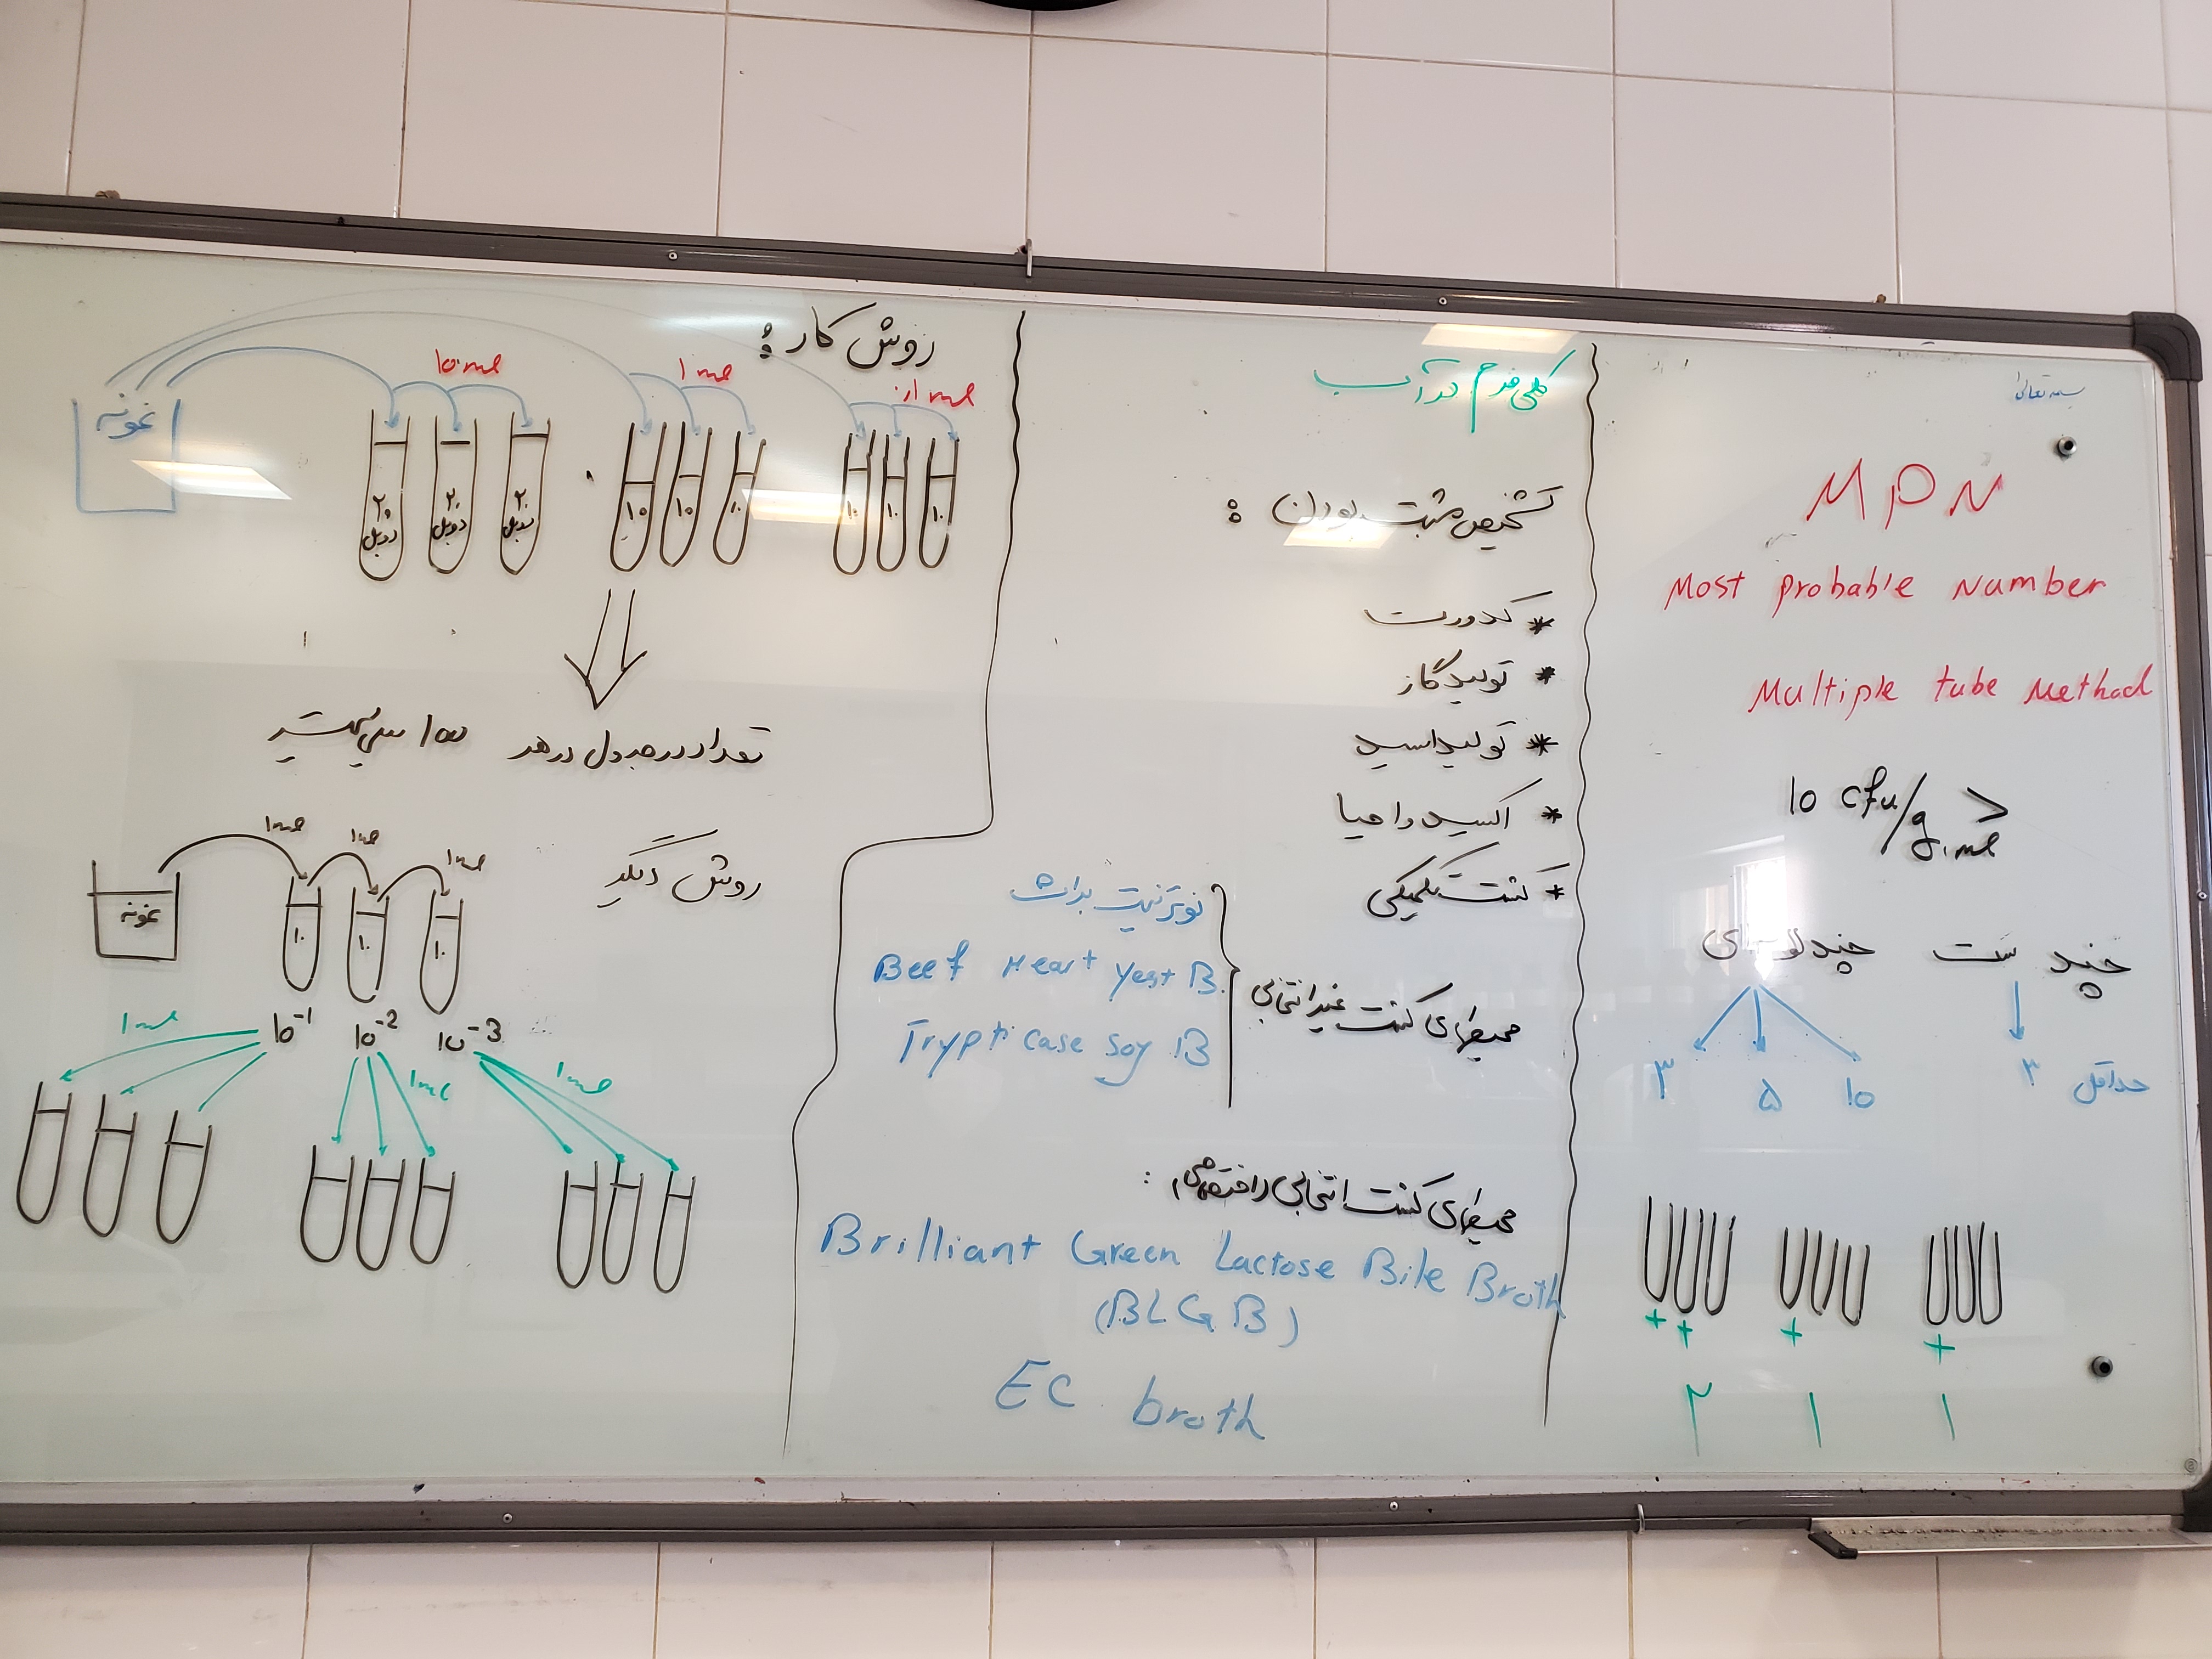 بسمه تعالی
MPN
Most probable Number
Multiple tube Method
10 cfu/g,ml >
چند ست چند لوله ای
حداقل ۳
۳ ۵ 10
+ + + +
۲ ۱ ۱
کلی فرم در آب
تشخیص مثبت بودن :
* کدورت
* تولید گاز
* تولید اسید
* اکسید و احیا
* کشت تکمیلی
محیطهای کشت غیر انتخابی
نوترینت براث
Beef Heart Yest B.
Trypticase soy B
محیطهای کشت انتخابی (اختصاصی) :
Brilliant Green Lactose Bile Broth
(BLGB)
EC broth
روش کار :
نمونه
10 ml 1 ml ۰/۱ ml
۲۰ دوبل ۲۰ دوبل ۲۰ دوبل
10 10 10
10 10 10
تعداد در جدول در هر 100 میلی لیتر
روش دیگر
1 ml 1 ml 1 ml
نمونه
10 10 10
10⁻¹ 10⁻² 10⁻³
1 ml 1 ml 1 ml